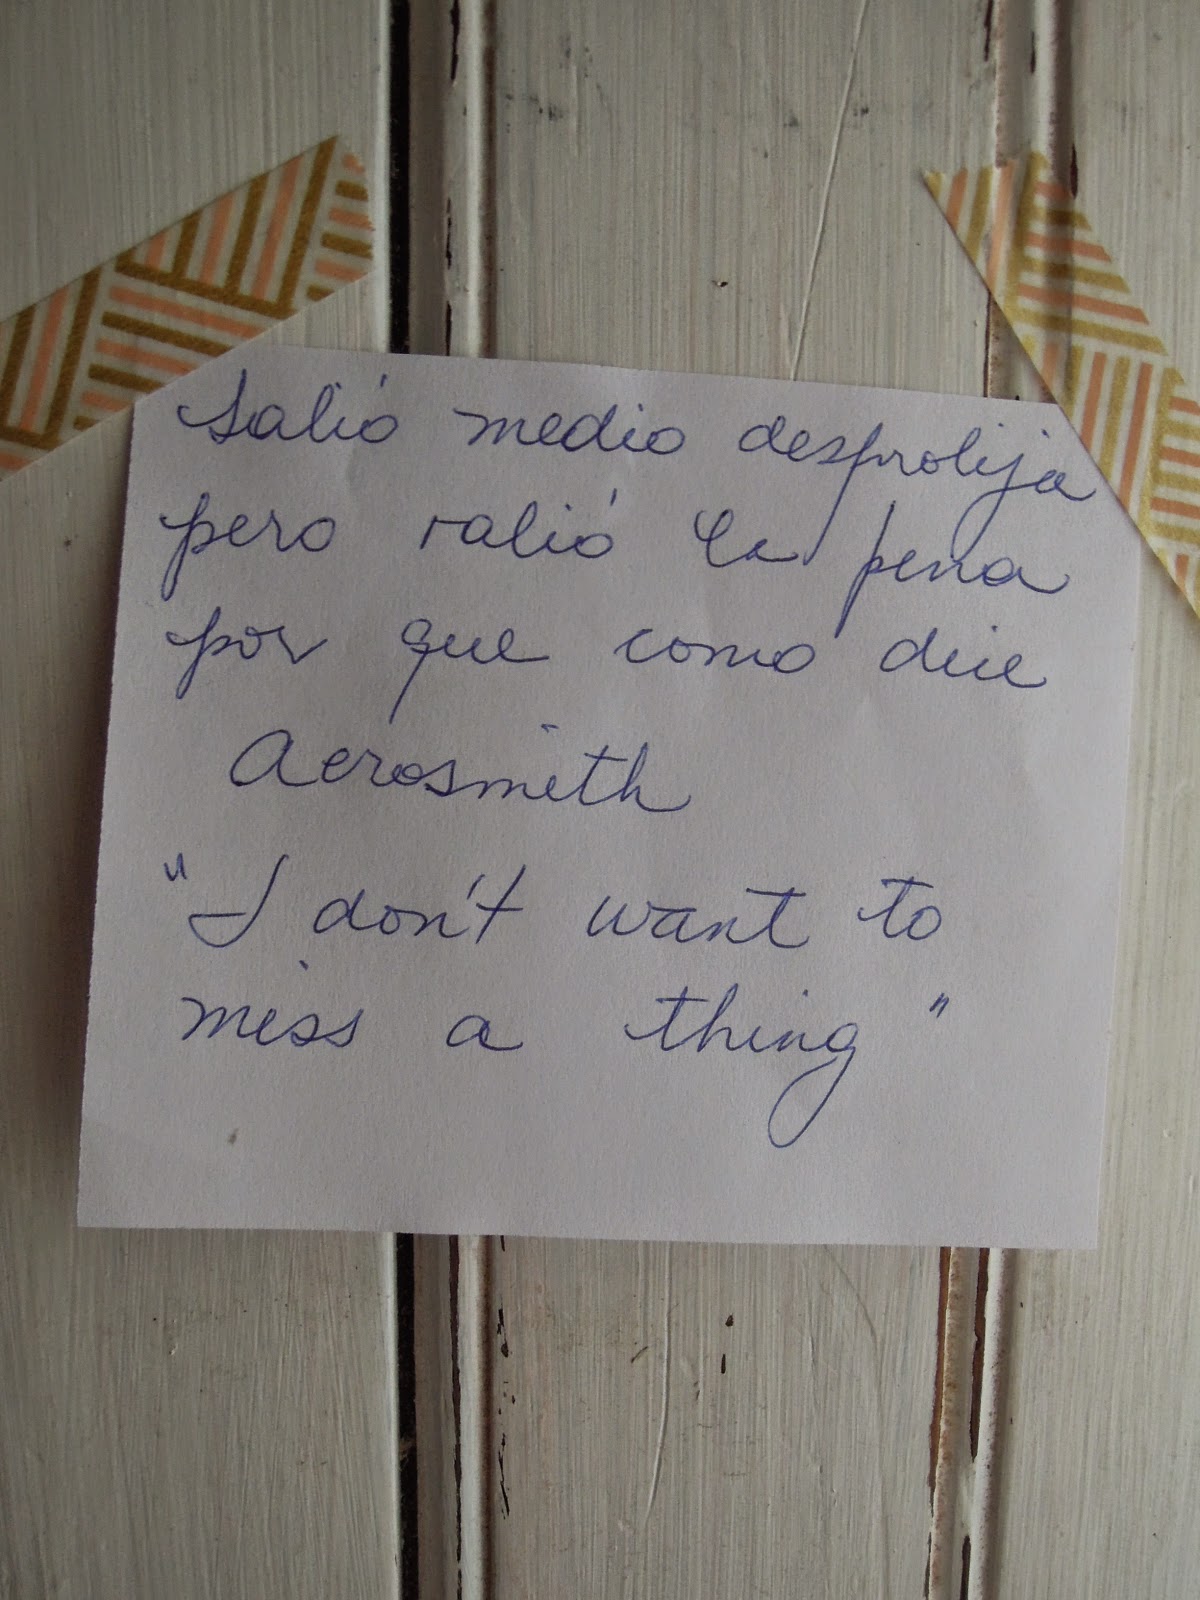 Salió medio desprolija
pero valió la pena
por que como dice
Aerosmith
"I don't want to
miss a thing"